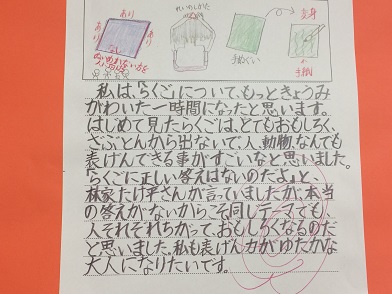 あり
あり
あり
なし
れいのしかた
手ぬぐい
変身
手紙
私は、「らくご」について、もっときょうみ
がわいた一時間になったと思います。
はじめて見たらくごは、とてもおもしろく、
ざぶとんから出ないで、人、動物、なんでも
表げんできる事がすごいなと思いました。
「らくごに正しい答えはないのだよ」と、
林家たけ平さんが言っていましたが、本当
の答えがないからこそ同じテーマでも、
人それぞれちがって、おもしろくなるのだ
と思いました。私も表げん力がゆたかな
大人になりたいです。